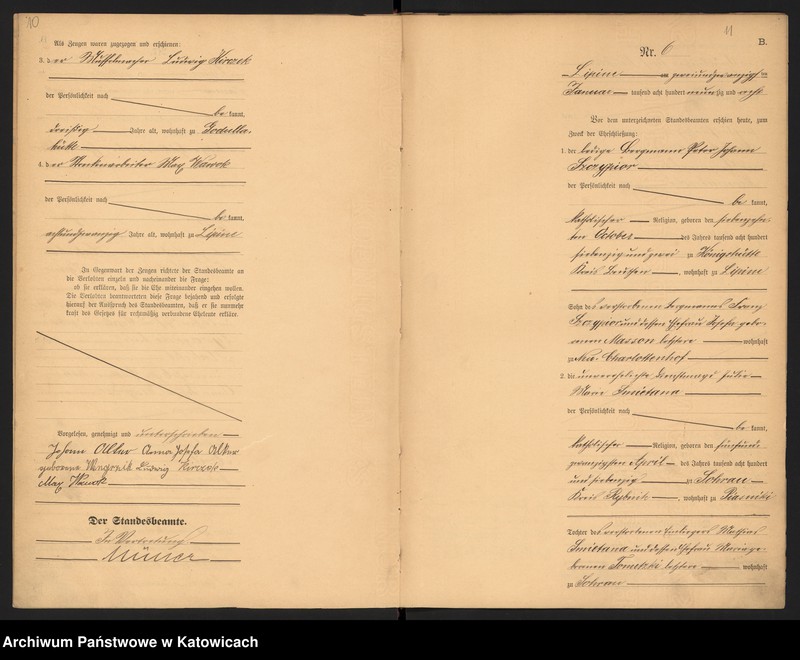 10
Als Zeugen waren zugezogen und erschienen:
3. der Muffelmacher Ludwig
der Persönlichkeit nach
bekannt,
dreißig Jahre alt, wohnhaft zu Godulla-
hütte
4. der Max Wawok
der Persönlichkeit nach
bekannt,
achtundzwanzig Jahre alt, wohnhaft zu Lipine
In Gegenwart der Zeugen richtete der Standesbeamte an
die Verlobten einzeln und nacheinander die Frage:
ob sie erklären, daß sie die Ehe miteinander eingehen wollen.
Die Verlobten beantworteten diese Frage bejahend und erfolgte
hierauf der Ausspruch des Standesbeamten, daß er sie nunmehr
kraft des Gesetzes für rechtmäßig verbundene Eheleute erkläre.
Vorgelesen, genehmigt und unterschrieben
Johann Anna Josefa
geborene Ludwig
Max Wawok
Der Standesbeamte.
In Vertretung
11
B.
Nr. 6
Lipine am zweiundzwanzigsten
Januar tausend acht hundert neunzig und acht
Vor dem unterzeichneten Standesbeamten erschien heute, zum
Zweck der Eheschließung:
1. der ledige Bergmann Peter Johann
Szczypior
der Persönlichkeit nach
bekannt,
katholischer Religion, geboren den siebenzehn-
ten October des Jahres tausend acht hundert
siebenzig und zwei zu Königshütte
Kreis Beuthen, wohnhaft zu Lipine
Sohn des verstorbenen Bergmanns Franz
Szczypior und dessen Ehefrau Josefa gebo-
renen Masson letztere wohnhaft
zu Neu-Charlottenhof
2. die unverehelichte Dienstmagd Julie
Marie Smietana
der Persönlichkeit nach
bekannt,
katholischer Religion, geboren den fünfund-
zwanzigsten April des Jahres tausend acht hundert
und siebenzig zu Sohrau
Kreis Rybnik, wohnhaft zu Piasniki
Tochter des verstorbenen Einliegers Mathias
Smietana und dessen Ehefrau Maria ge-
borenen letztere wohnhaft
zu Sohrau
Archiwum Państwowe w Katowicach